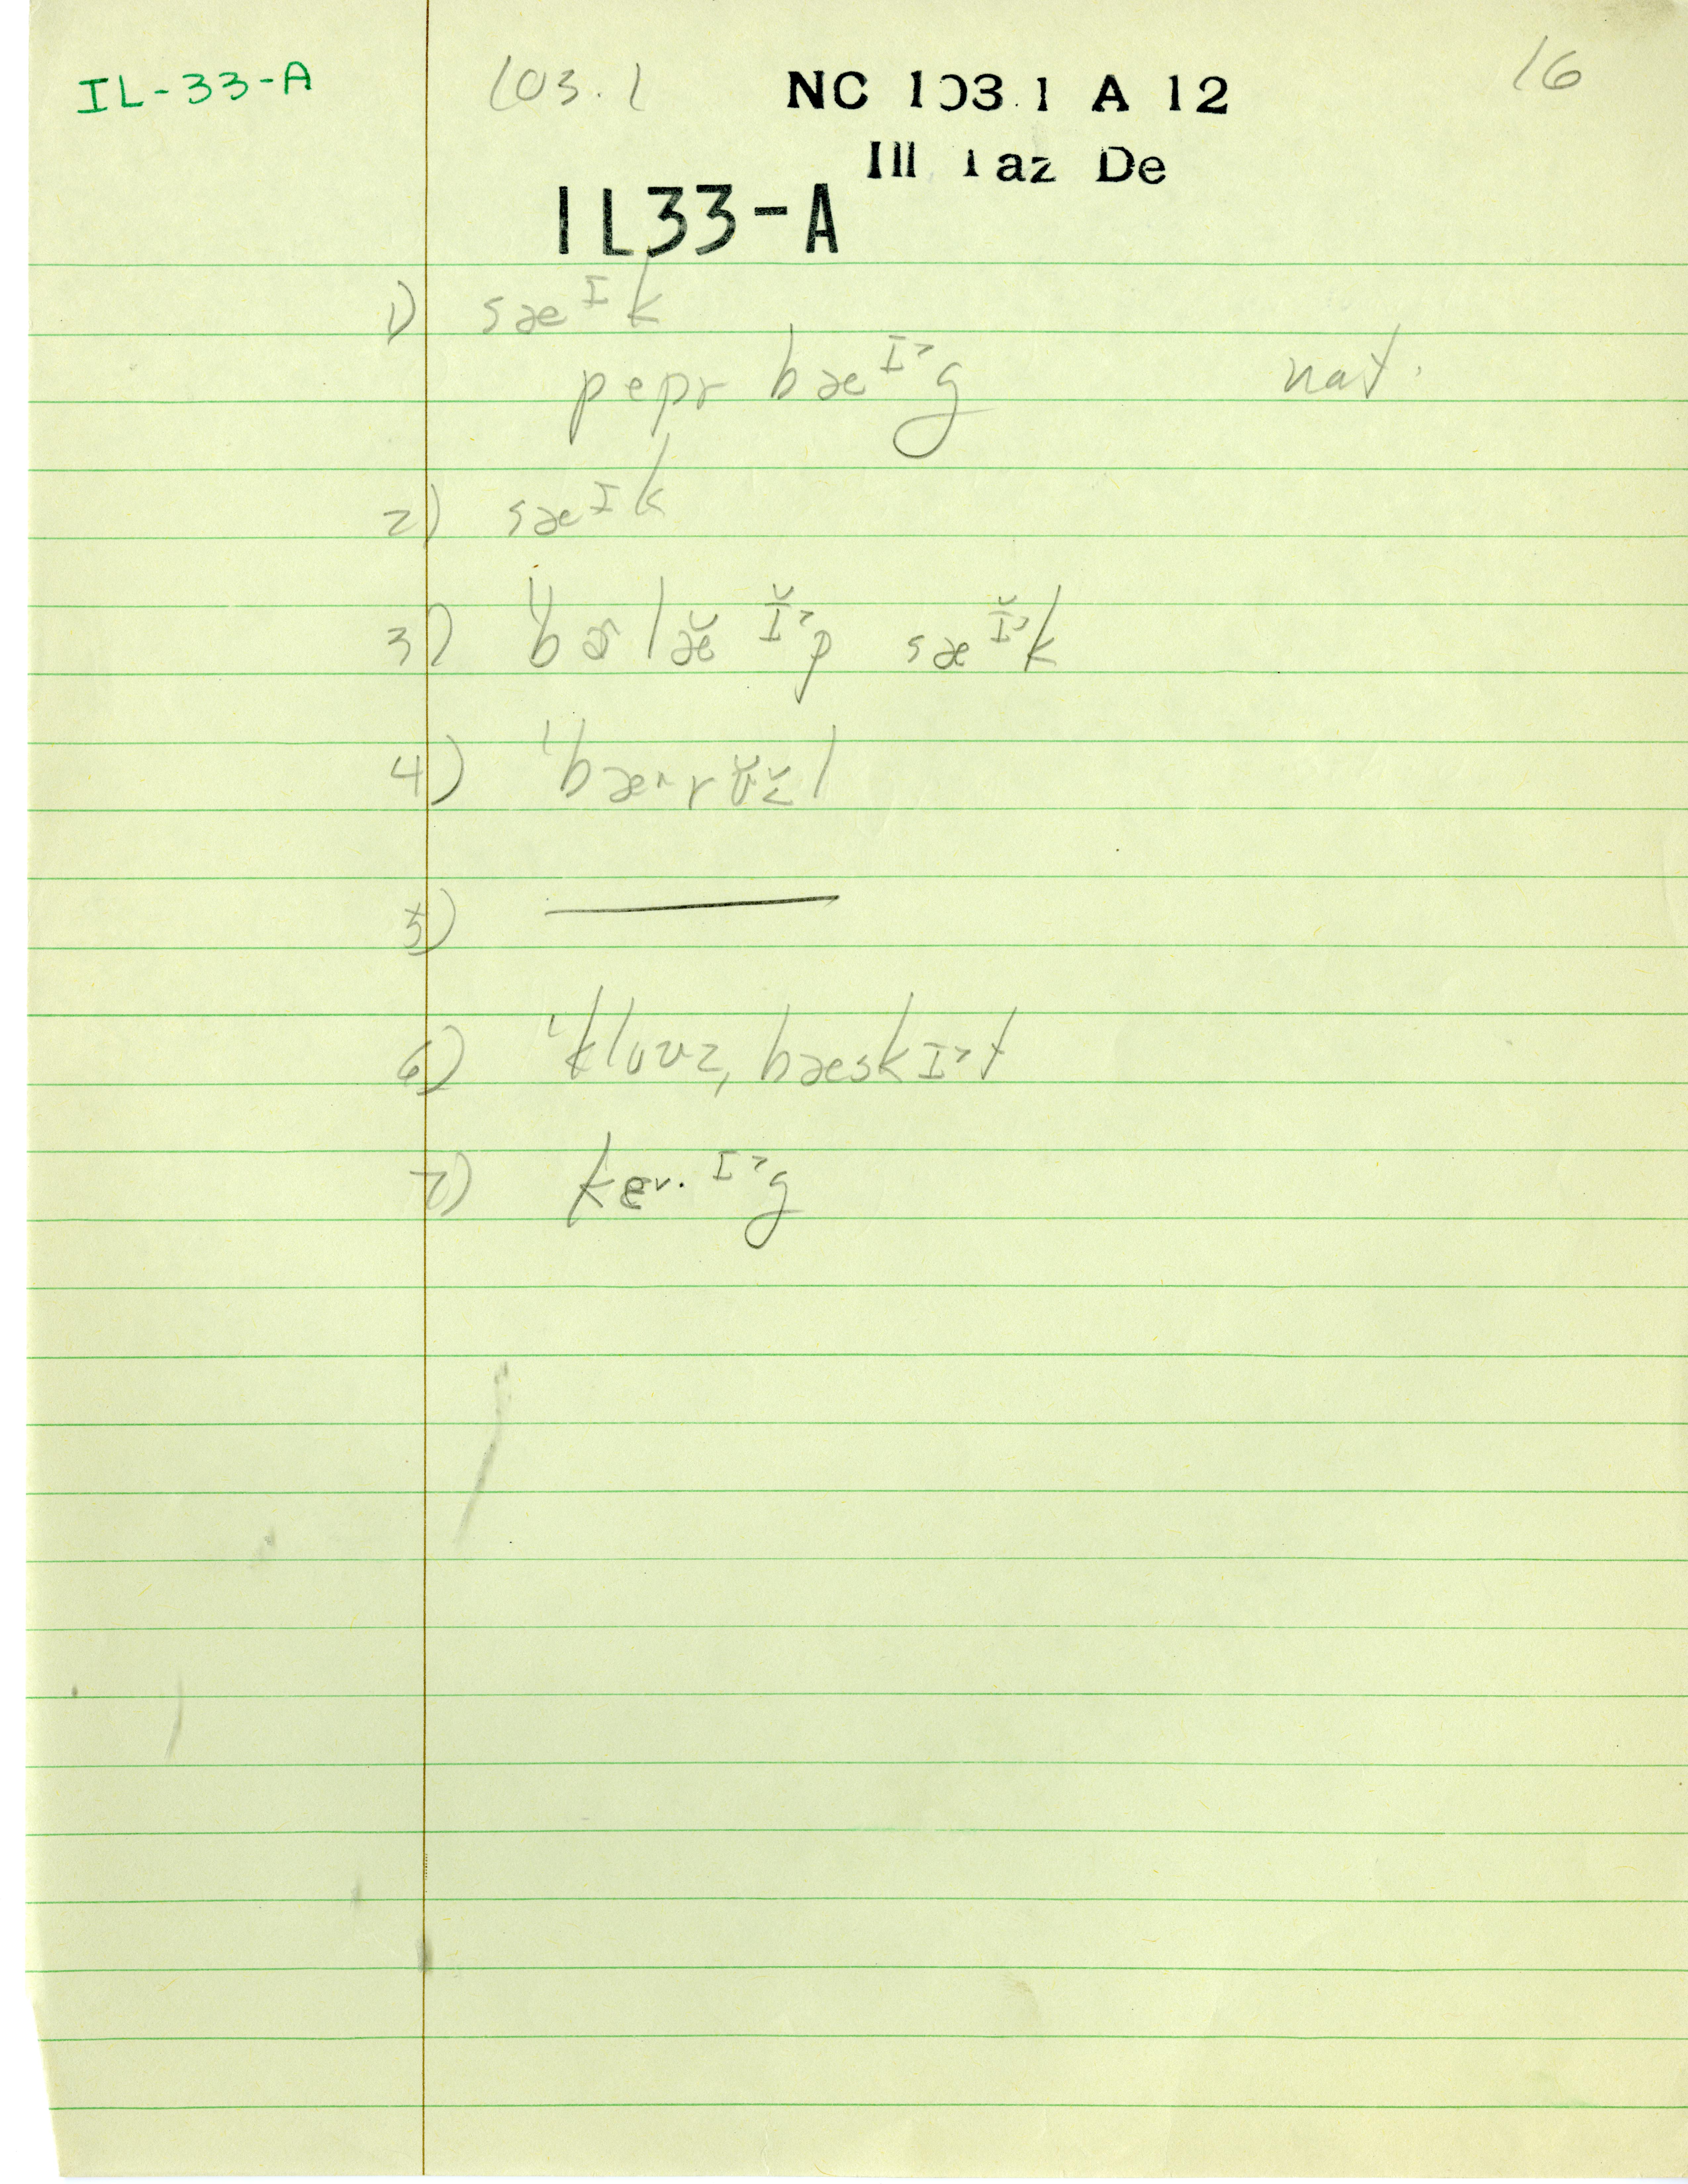 IL-33-A 103.1 NC 103.1 A 12 16
Ill 1 az De
IL33-A
1) sæᴵk
pepr bæᴵ˃g nat.
2) sæᴵk
3) 'bɚlæ̆ ᴵ̆˃p sæᴵ̆˃k
4) 'bæ˄rʊ̆z̆l
5) ———
6) 'kloʊz, bæskɪ˃t
7) keᵛ·ᴵ˃g